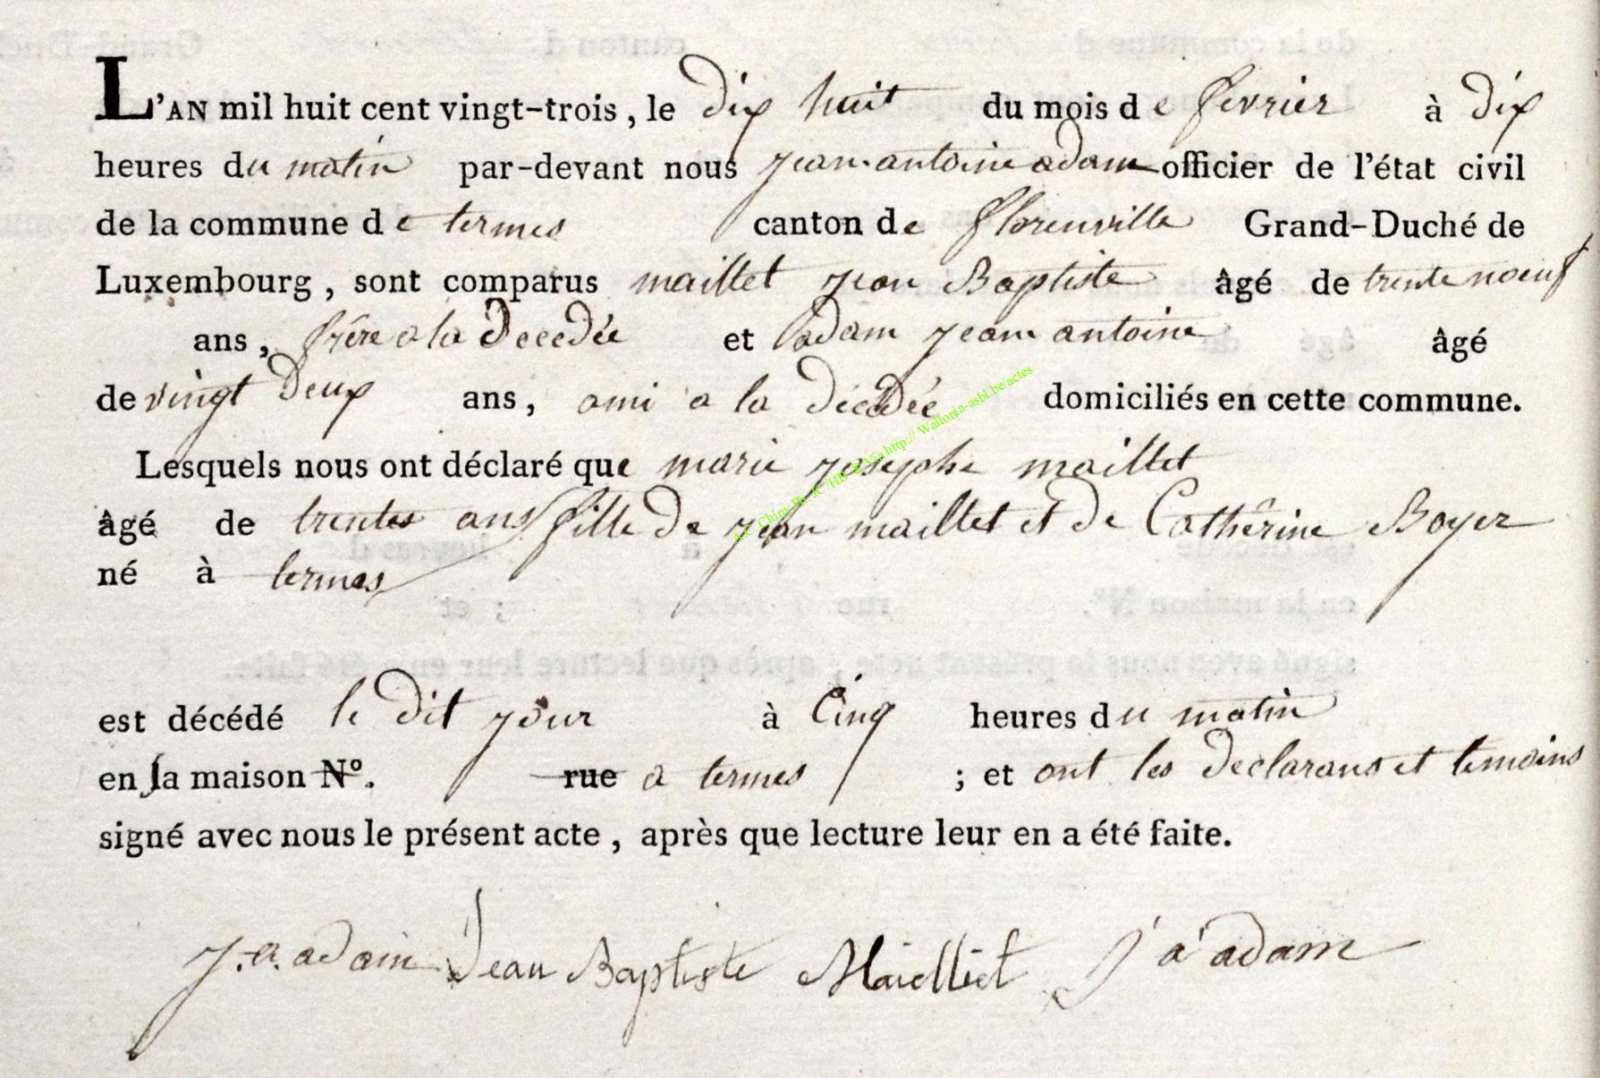 L'AN mil huit cent vingt-trois, le dix huit du mois de fevrier à dix
heures du matin par-devant nous jean antoine adam officier de l'état civil
de la commune de termes canton de florenville Grand-Duché de
Luxembourg, sont comparus maillet jean Baptiste âgé de trente noeuf
ans, frère a la Decedée et adam jean antoine âgé
de vingt deux ans, ami a la décédée domiciliés en cette commune.
Lesquels nous ont déclaré que marie josephe maillet
âgé de trentes ans fille de jean maillet et de Cathêrine Boyer
né à termes
est décédé le dit jour à Cinq heures du matin
en sa maison N°. rue a termes ; et ont les declarans et temoins
signé avec nous le présent acte, après que lecture leur en a été faite.
j. a. adam Jean Baptiste Maillet j a adam
http:// Wallonia-asbl.be/actes